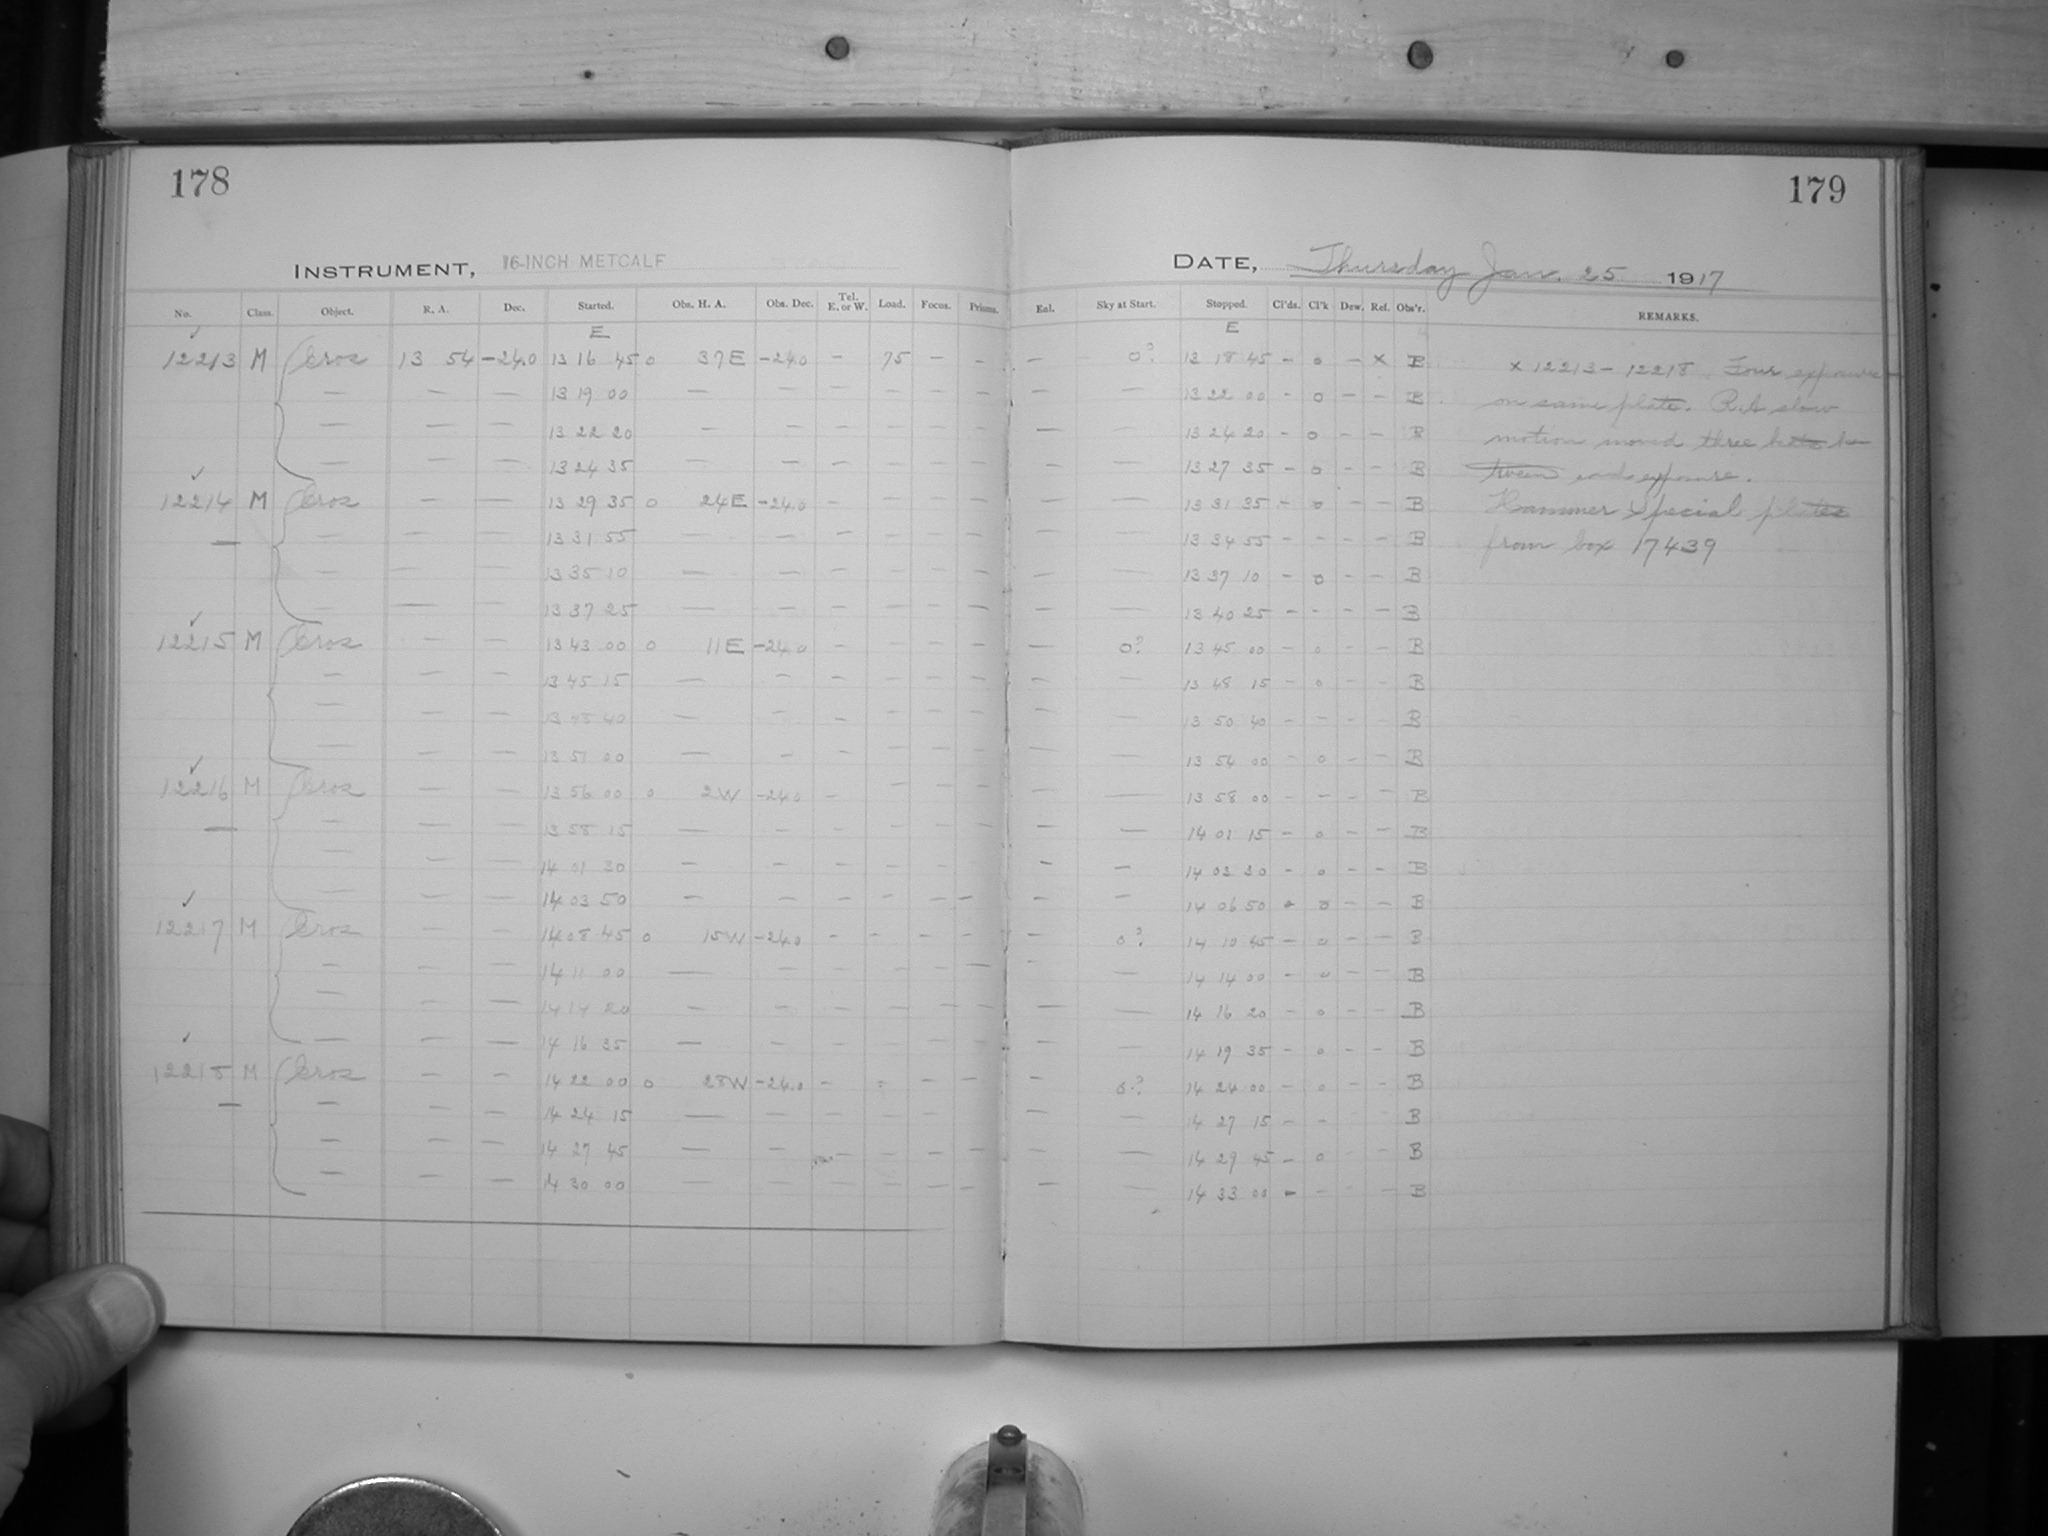 178
INSTRUMENT, 16-INCH METCALF
No. Class. Object. R. A. Dec. Started. Obs. H. A. Obs. Dec. Tel. E. or W. Load. Focus. Prisms.
E
12213 M Eros 13 54 -24.0 13 16 45 0 37E -24.0 - 75 - -
— — — 13 19 00 — — - - - -
— — — 13 22 20 — — - - - -
— — — 13 24 35 — — - - - -
12214 M Eros — — 13 29 35 0 24E -24.0 - - - -
— — — 13 31 55 — — - - - -
— — — 13 35 10 — — - - - -
— — — 13 37 25 — — - - - -
12215 M Eros — — 13 43 00 0 11E -24.0 - - - -
— — — 13 45 15 — — - - - -
— — — 13 48 40 — — - - - -
— — — 13 51 00 — — - - - -
12216 M Eros — — 13 56 00 0 2W -24.0 - - - -
— — — 13 58 15 — — - - - -
— — — 14 01 30 — — - - - -
— — — 14 03 50 — — - - - -
12217 M Eros — — 14 08 45 0 15W -24.0 - - - -
— — — 14 11 00 — — - - - -
— — — 14 14 20 — — - - - -
— — 14 16 35 — — - - - -
12218 M Eros — — 14 22 00 0 28W -24.0 - - - -
— — — 14 24 15 — — - - - -
— — — 14 27 45 — — - - - -
— — — 14 30 00 — — - - - -
179
DATE, Thursday Jan. 25 1917
Enl. Sky at Start. Stopped. Cl'ds. Cl'k Dew. Ref. Obs'r. REMARKS.
E
— 0? 13 18 45 - 0 - x B x 12213 - 12218. Four exposures
— — 13 22 00 - 0 - - B on same plate. R.A slow
— — 13 24 20 - 0 - - B motion moved three beats be
— — 13 27 35 - 0 - - B tween each exposure.
— — 13 31 35 - 0 - - B Hammer Special plates
— — 13 34 55 - - - - B from box 17439
— — 13 37 10 - 0 - - B
— — 13 40 25 - - - - B
— 0? 13 45 00 - 0 - - B
— — 13 48 15 - 0 - - B
— — 13 50 40 - - - - B
— — 13 54 00 - 0 - - B
— — 13 58 00 - - - - B
— — 14 01 15 - 0 - - B
— — 14 03 30 - 0 - - B
— — 14 06 50 - 0 - - B
— 0? 14 10 45 - 0 - - B
— — 14 14 00 - 0 - - B
— — 14 16 20 - 0 - - B
— — 14 19 35 - 0 - - B
— 0? 14 24 00 - 0 - - B
— — 14 27 15 - - B
— — 14 29 45 - 0 - - B
— — 14 33 00 - - - - B